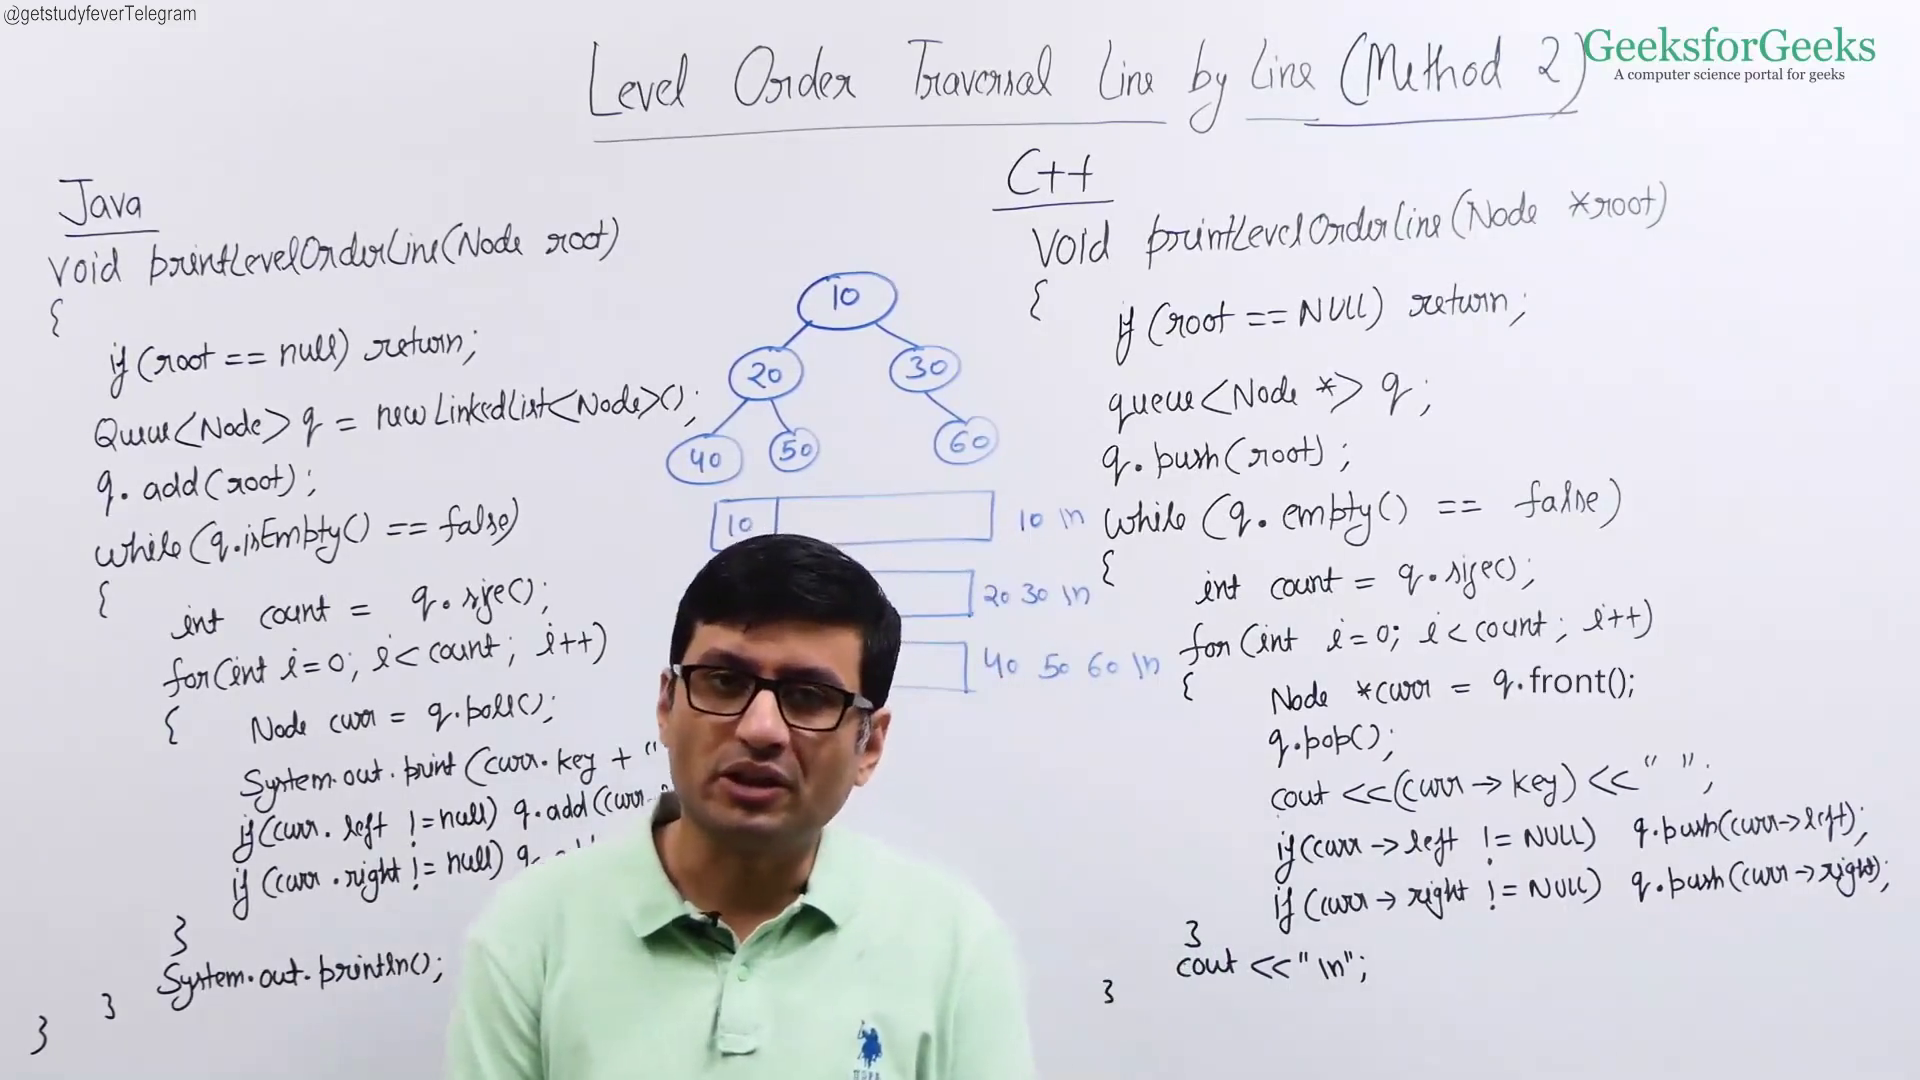 @getstudyfeverTelegram
Level Order Traversal Line by Line (Method 2)
GeeksforGeeks
A computer science portal for geeks
Java
void printLevelOrderLine(Node root)
{
if (root == null) return;
Queue<Node> q = new LinkedList<Node>();
q. add(root);
while (q.isEmpty() == false)
{
int count = q.size();
for(int i=0; i<count; i++)
{ Node curr = q.poll();
System.out.print (curr.key + "
if(curr. left != null) q.add(curr.
if (curr .right != null) q.
}
System.out.println();
}
}
10
20 30
40 50 60
10
10 \n
20 30 \n
40 50 60 \n
C++
void printLevelOrderLine(Node *root)
{
if (root == NULL) return;
queue<Node *> q;
q. push(root);
while (q. empty() == false)
{
int count = q.size();
for (int i=0; i<count; i++)
{
Node *curr = q.front();
q.pop();
cout <<(curr → key) <<" ";
if(curr → left != NULL) q.push(curr→left);
if (curr → right != NULL) q.push(curr→right);
}
cout <<"\n";
}